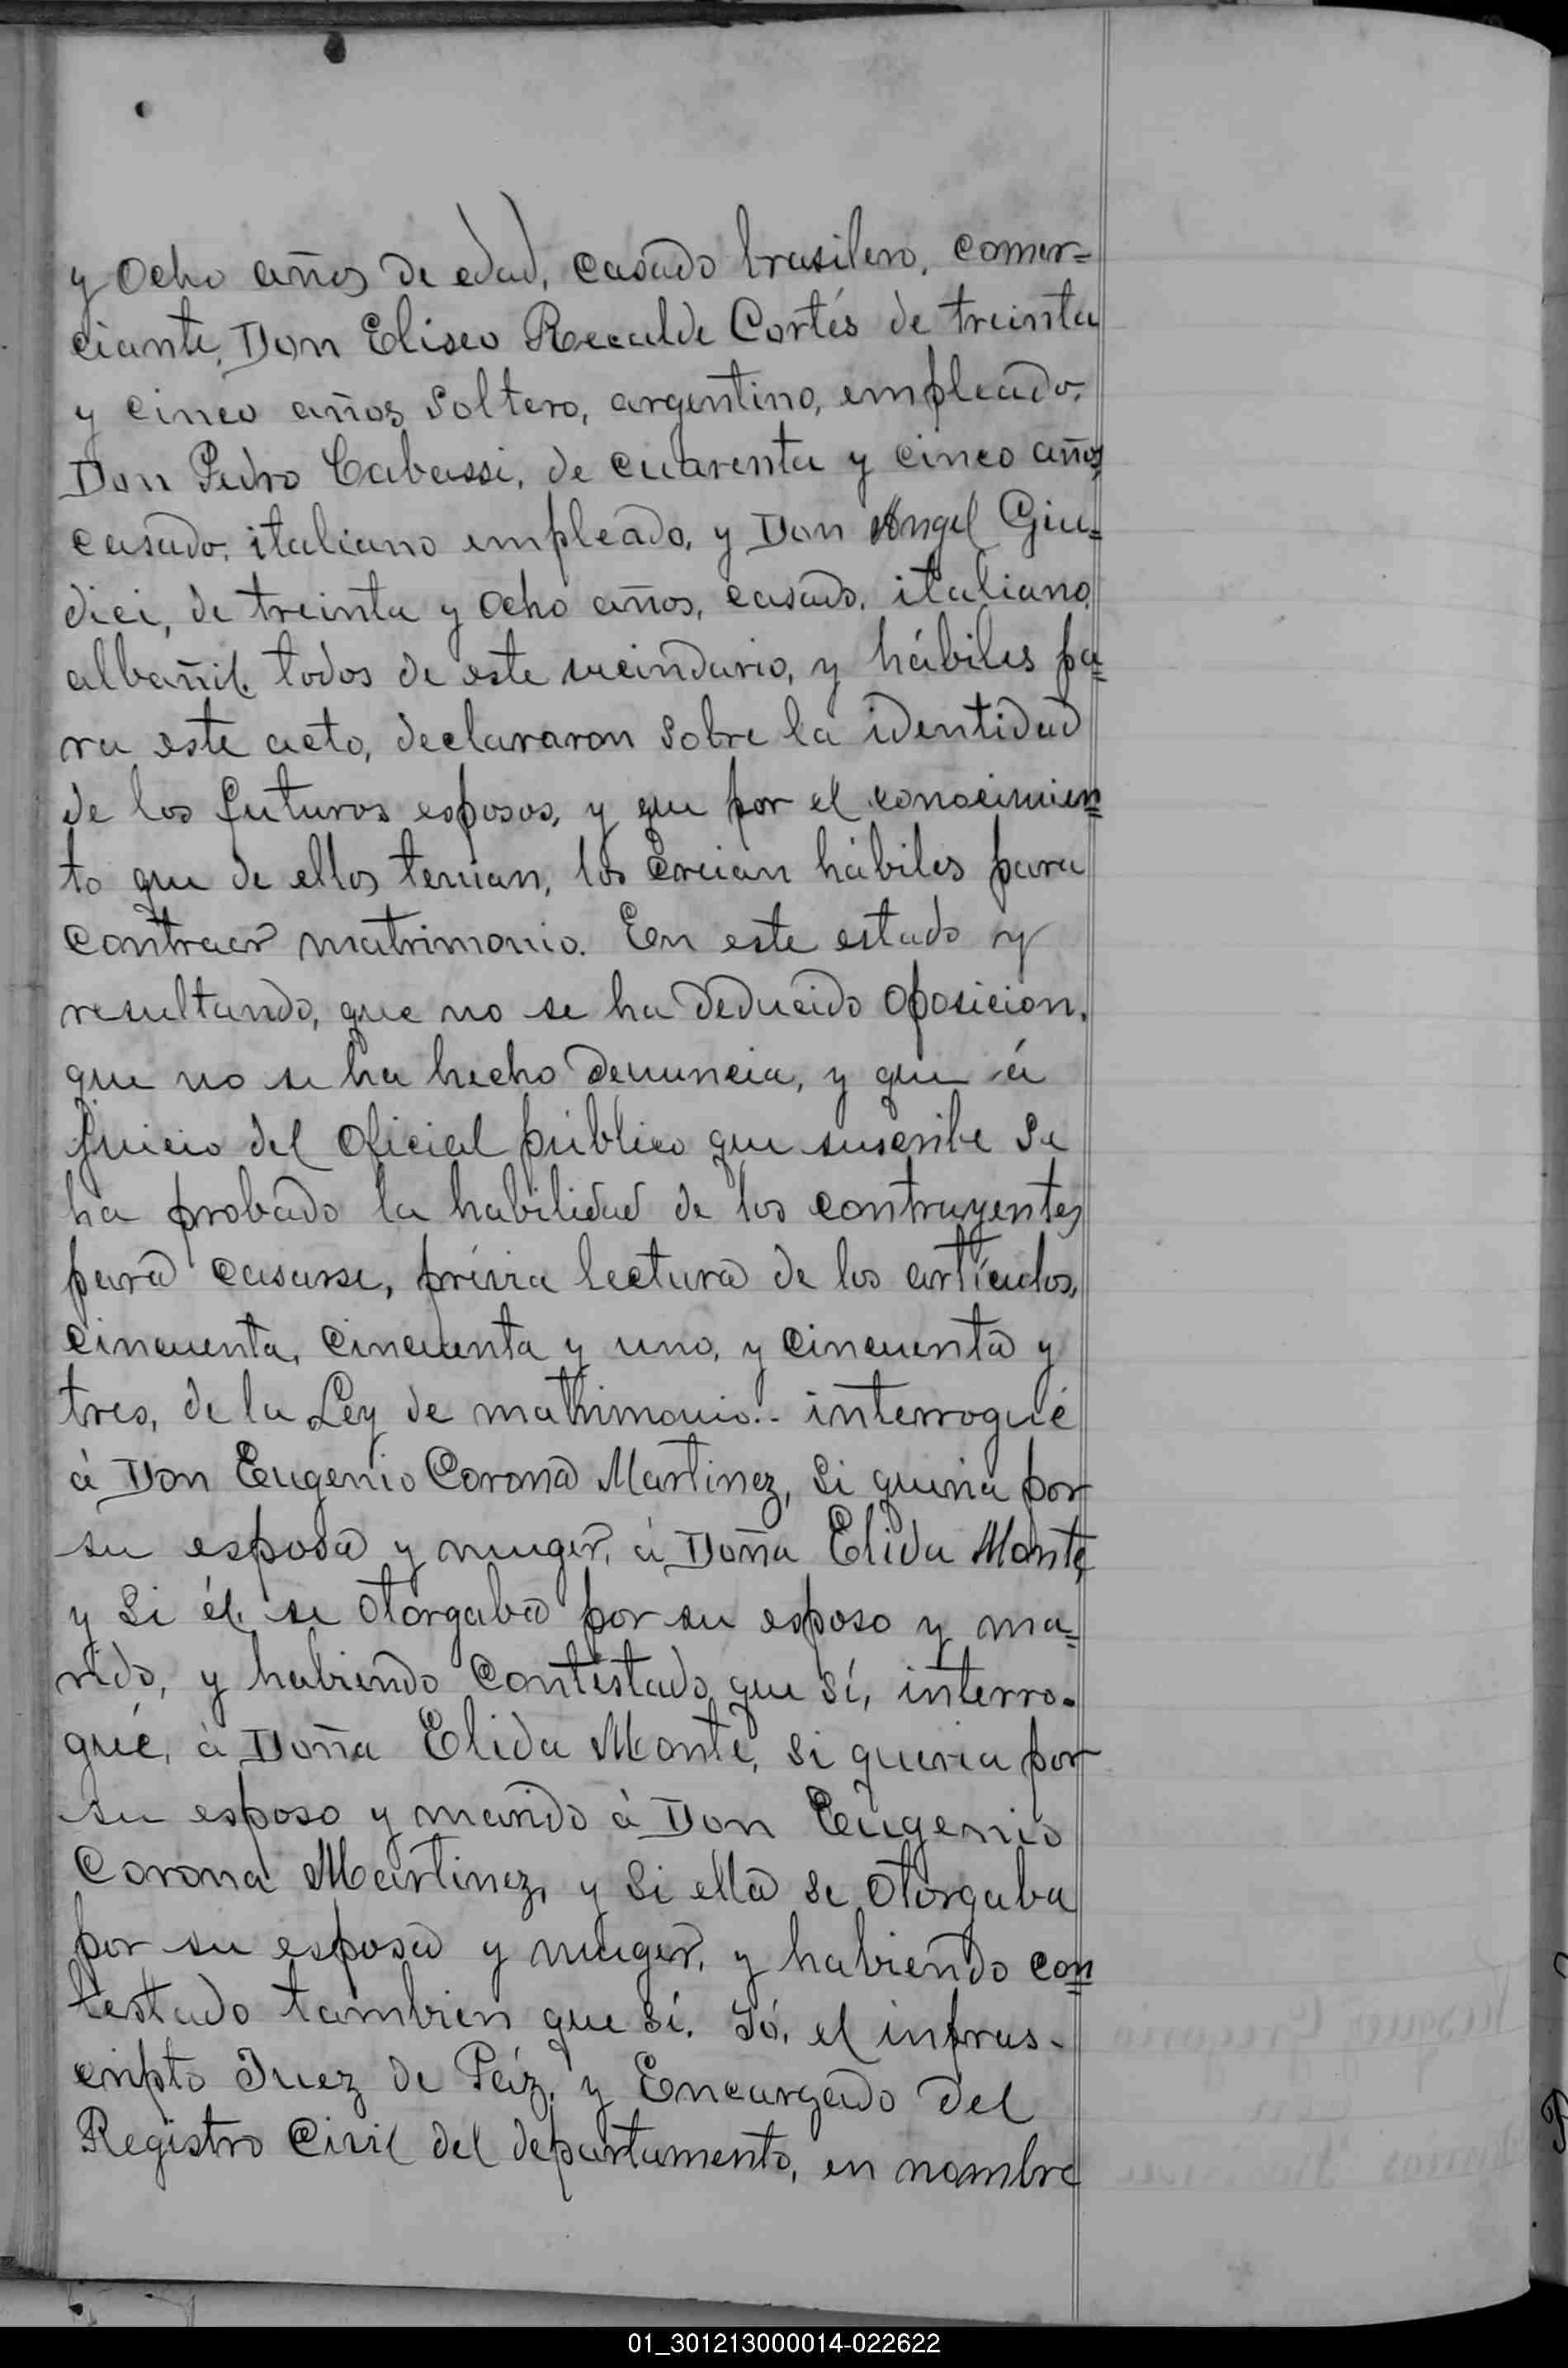 y Ocho años de edad, casado brasilero, comer=
ciante, Don Eliseo Recalde Cortés de treinta
y cinco años soltero, argentino, empleado,
Don Pedro Cabassi, de cuarenta y cinco años,
casado, italiano empleado, y Don Angel Giu=
dici, de treinta y Ocho años, casado, italiano,
albañil, todos de este vecindario, y hábiles pa=
ra este acto, declararon sobre la identidad
de los futuros esposos, y que por el conocimien=
to que de ellos tenian, los creian hábiles para
contraer matrimonio. En este estado y
resultando, que no se ha deducido oposicion,
que no se ha hecho denuncia, y que á
juicio del Oficial público que suscribe se
ha probado la habilidad de los contrayentes
para casarse, prévia lectura de los artículos,
cincuenta, cincuenta y uno, y cincuenta y
tres, de la Ley de matrimonio.- interrogué
á Don Eugenio Corona Martinez, si queria por
su esposa y muger, á Doña Elida Monte,
y si él se otorgaba por su esposo y ma=
rido, y habiendo contestado que sí, interro-
gué, á Doña Elida Monte, si queria por
su esposo y marido á Don Eugenio
Corona Martinez, y si ella se otorgaba
por su esposa y muger, y habiendo con=
testado tambien que sí. Yó, el infras-
cripto Juez de Páz, y Encargado del
Registro Civil del departamento, en nombre
01_301213000014-022622